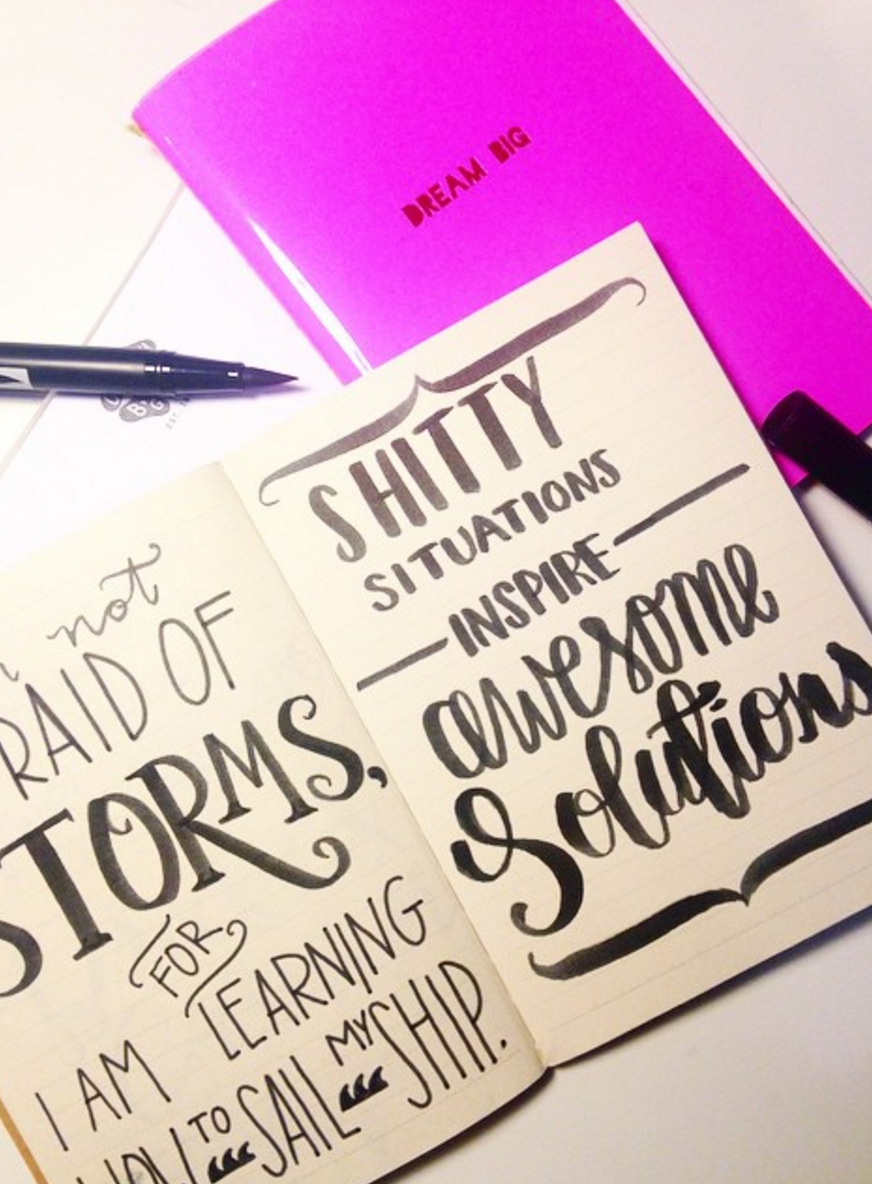 DREAM BIG
SHITTY
SITUATIONS
INSPIRE
awesome
Solutions
not
RAID OF
STORMS,
FOR
I AM LEARNING
HOW TO SAIL MY SHIP.